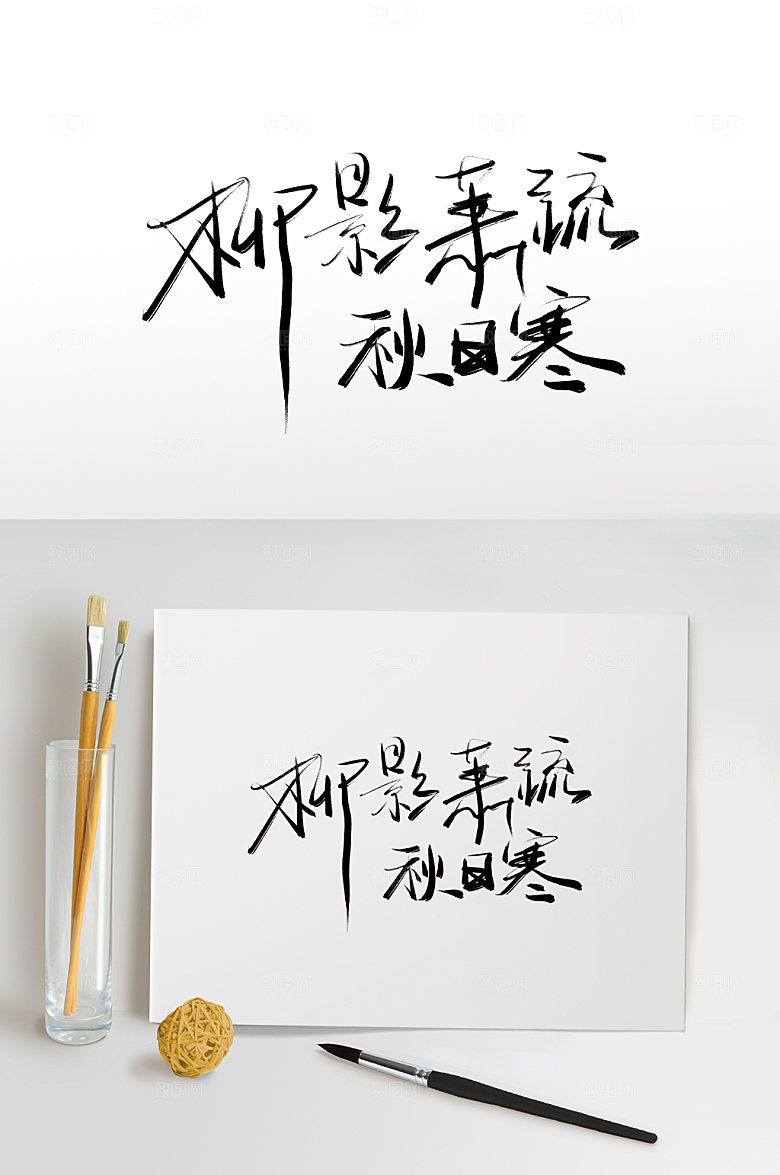 柳影萧疏
秋日寒
柳影萧疏
秋日寒